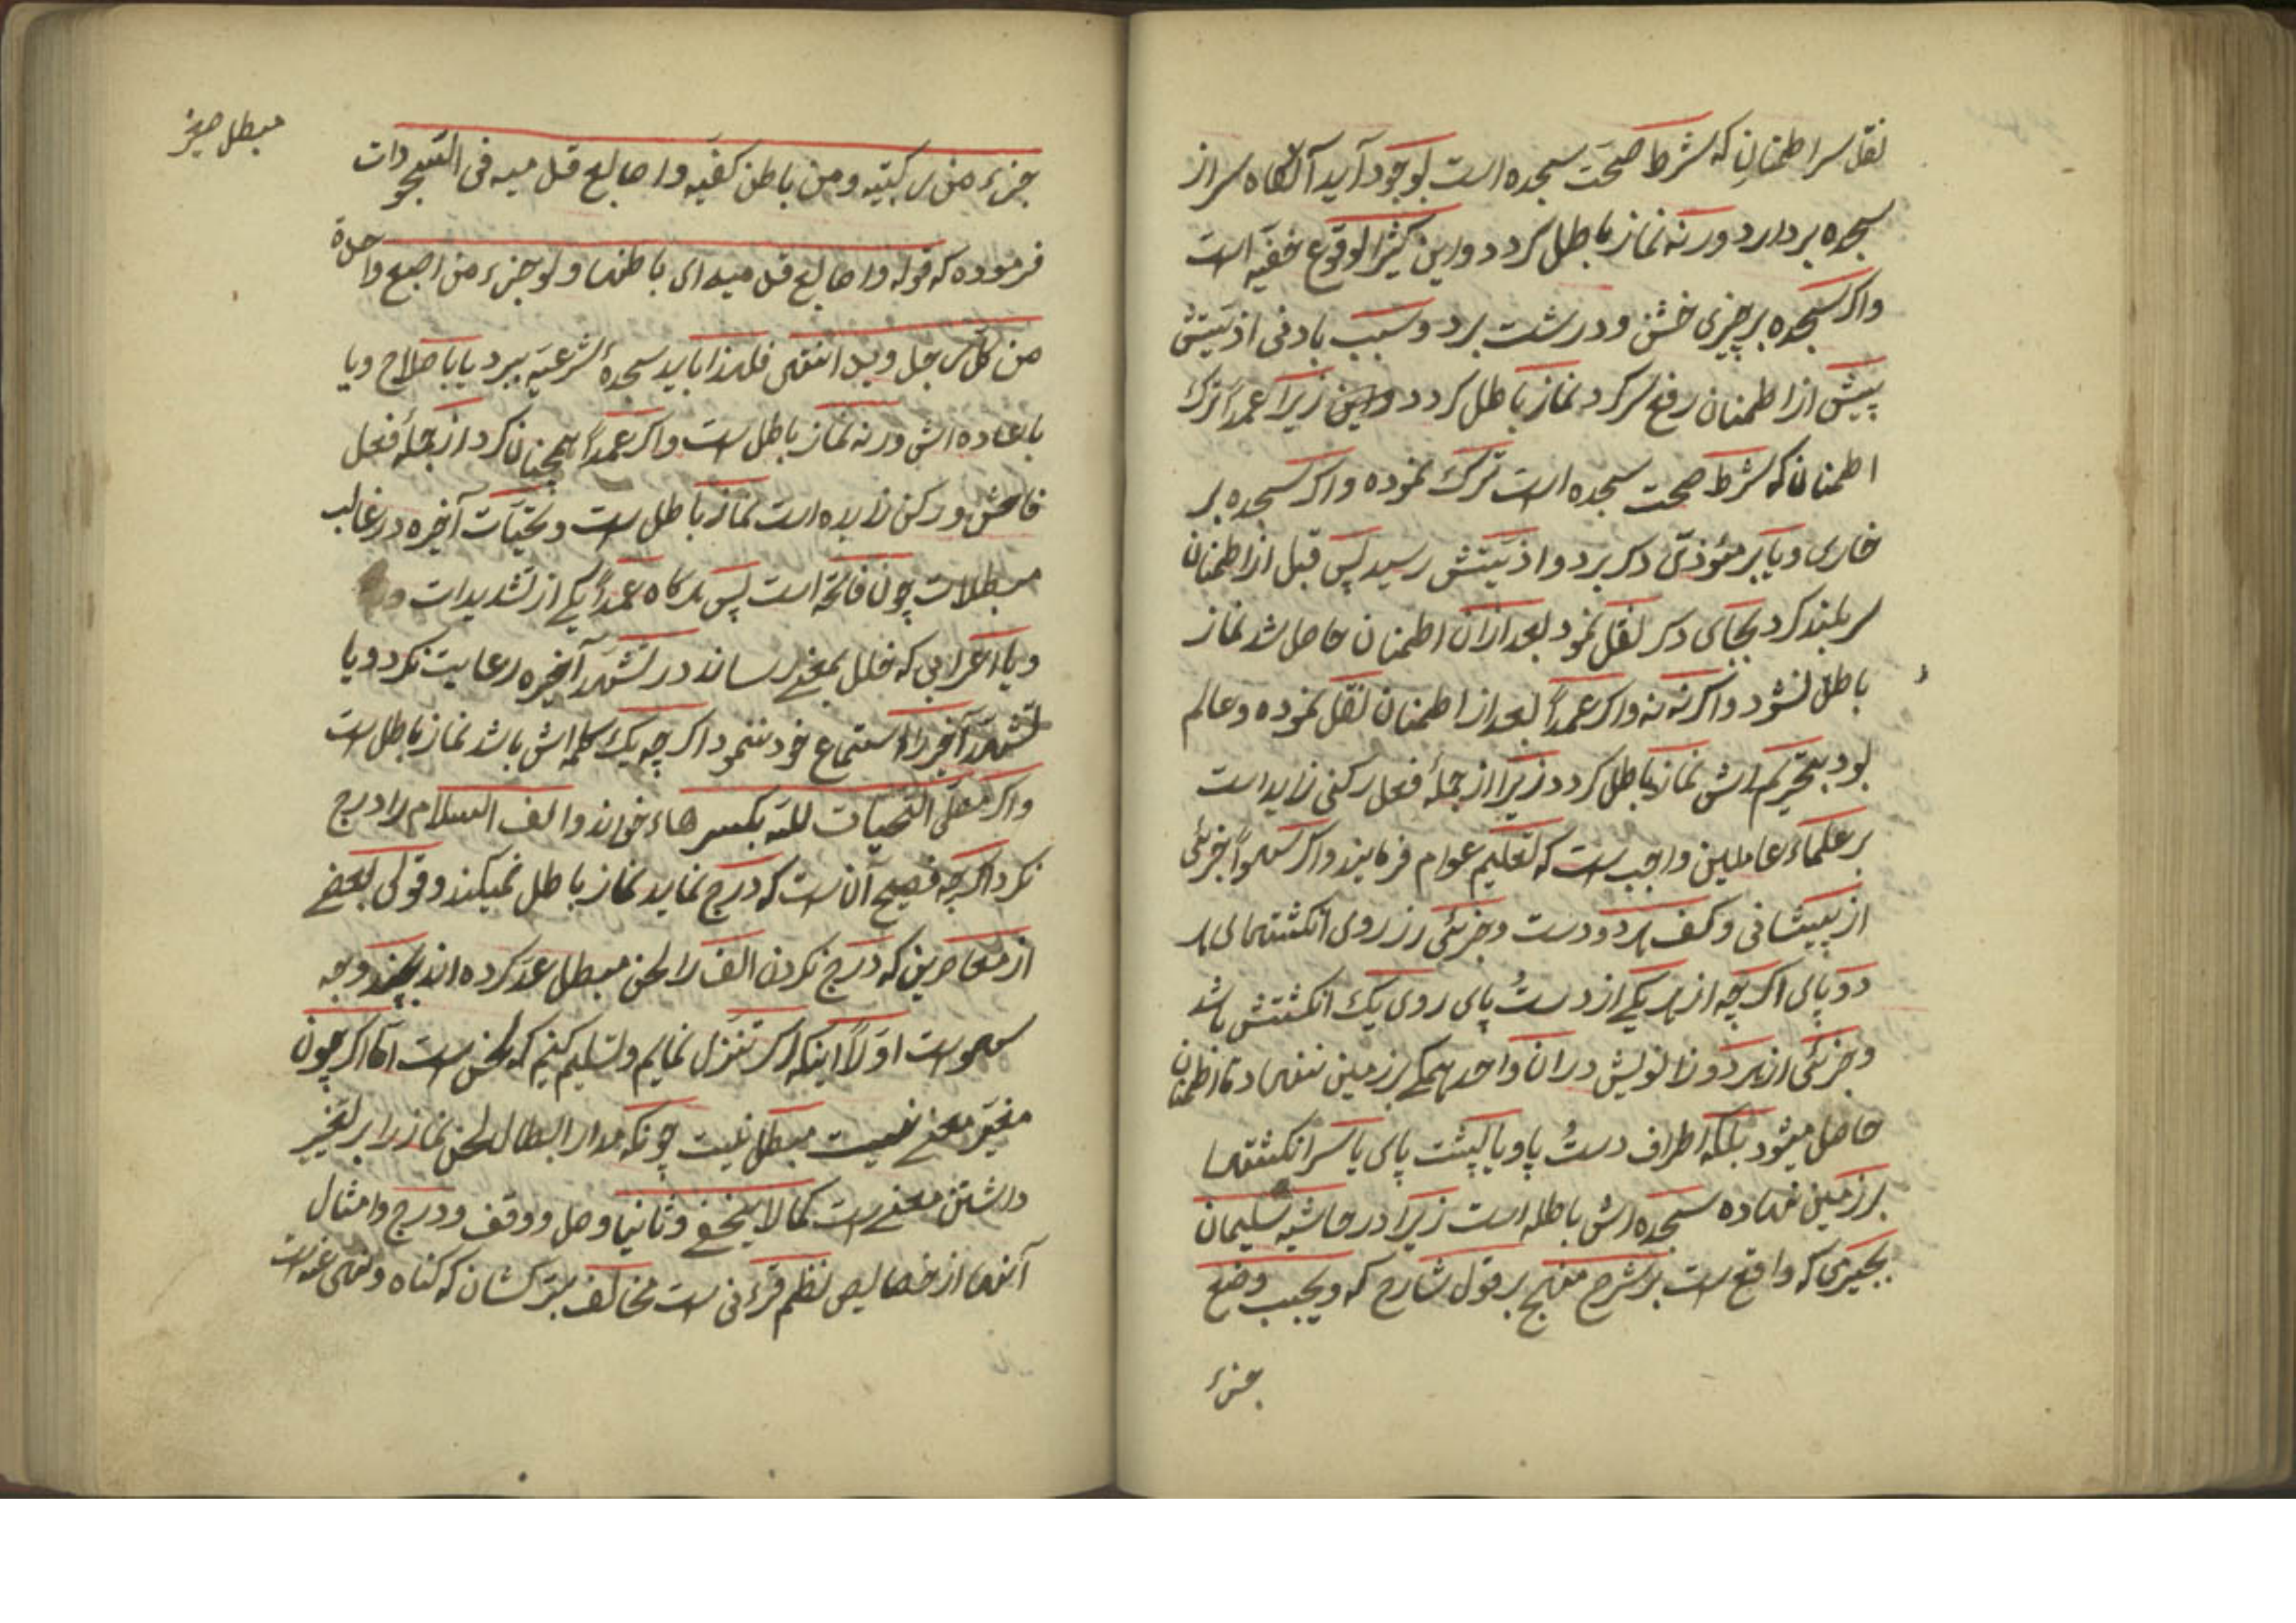 نقل سر اطمنان که شرط صحت سجده است بوجود آید آنگاه سر از
سجده بردارد ورنه نماز باطل کردد و این کثیر الوقوع خفیه است
واکر سجده بر چیزی خشن ودرشت برد وسبب بادنی اذیتش
پیش از اطمنان رفع سر کرد نماز باطل کردد زیرا عمداً ترک
اطمنان که شرط صحت سجده است ترک نموده واکر سجده بر
خاری ویا بر مؤذئ دکر برد واذیتش رسید پس قبل از اطمنان
سر بلند کرد بجای دکر نقل نمود بعد ازان اطمنان حاصل شد نماز
باطل نشود واکرنه نه واکر عمداً بعد از اطمنان نقل نموده وعالم
بود بتحریم اش نماز باطل کردد زیرا از جملهٔ فعل رکنی زاید است
بر علماء عاملین واجب ست که تعلیم عوام فرمایند واکر سهواً جزئی
از پیشانی وکف هر دو دست وجزئی از روی انکشتهای هر
دو پای اکرچه از هر یکی از دست پای روی یک انکشتش باشد
وجزئی از هر دو زانویش دران واحد همکی بر زمین ننهاد تا اطمنان
حاصل میشود بلکه اطراف دست پا ویا پشت پای یا سر انکشتها
بر زمین نهاده سجده اش باطله است زیرا در حاشیه سلیمان
بجیرمی که واقع ست بر شرح منهج بر قول شارح که ویجب وضع
جزء
مبطل صیغ
جزء من رکبتیه ومن باطن کفیه واصابع قدمیه فی السجودات
فرموده که قوله واصابع قدمیه ای باطنها ولو جزء من اصبع واحدة
من کل رجل وید انتهی فلهذا باید سجدهٔ شرعیه ببرد یا باصلاح ویا
باعاده اش ورنه نماز باطل ست واکر عمداً همچنان کرد از جملهٔ فعل
فاحش ورکن زایده است نماز باطل ست وتحیات آخره در غالب
مبطلات چون فاتحه است پس هرکاه عمداً یکی از تشدیدات
ویا اعرابی که خلل بمعنی رساند در تشهد آخره رعایت نکرد ویا
تشهد آخر را استماع خود ننمود اکرچه یک کلمه اش باشد نماز باطل ست
واکر مصلی التحیات لله بکسر هاء خواند والف السلام را درج
نکرد اکرچه فصیح آن ست که درج نماید نماز باطل نمیکند وقولی بعضی
از معاصرین که درج نکردن الف را لحن مبطل عد کرده اند بچند وجه
سهو ست اولاً اینکه اکر تنزل نمایم وتسلیم کنیم که لحن ست اما اکر چون
مغیر معنی نیست مبطل نیست چونکه مدار ابطال لحن نماز را بر تغییر
داشتن معنی ست کما لا یخفی وثانیا وصل ووقف ودرج وامثال
آنها از خصایص نظم قرءانی ست مخالف بترکشان که کناه ونهی عنه است